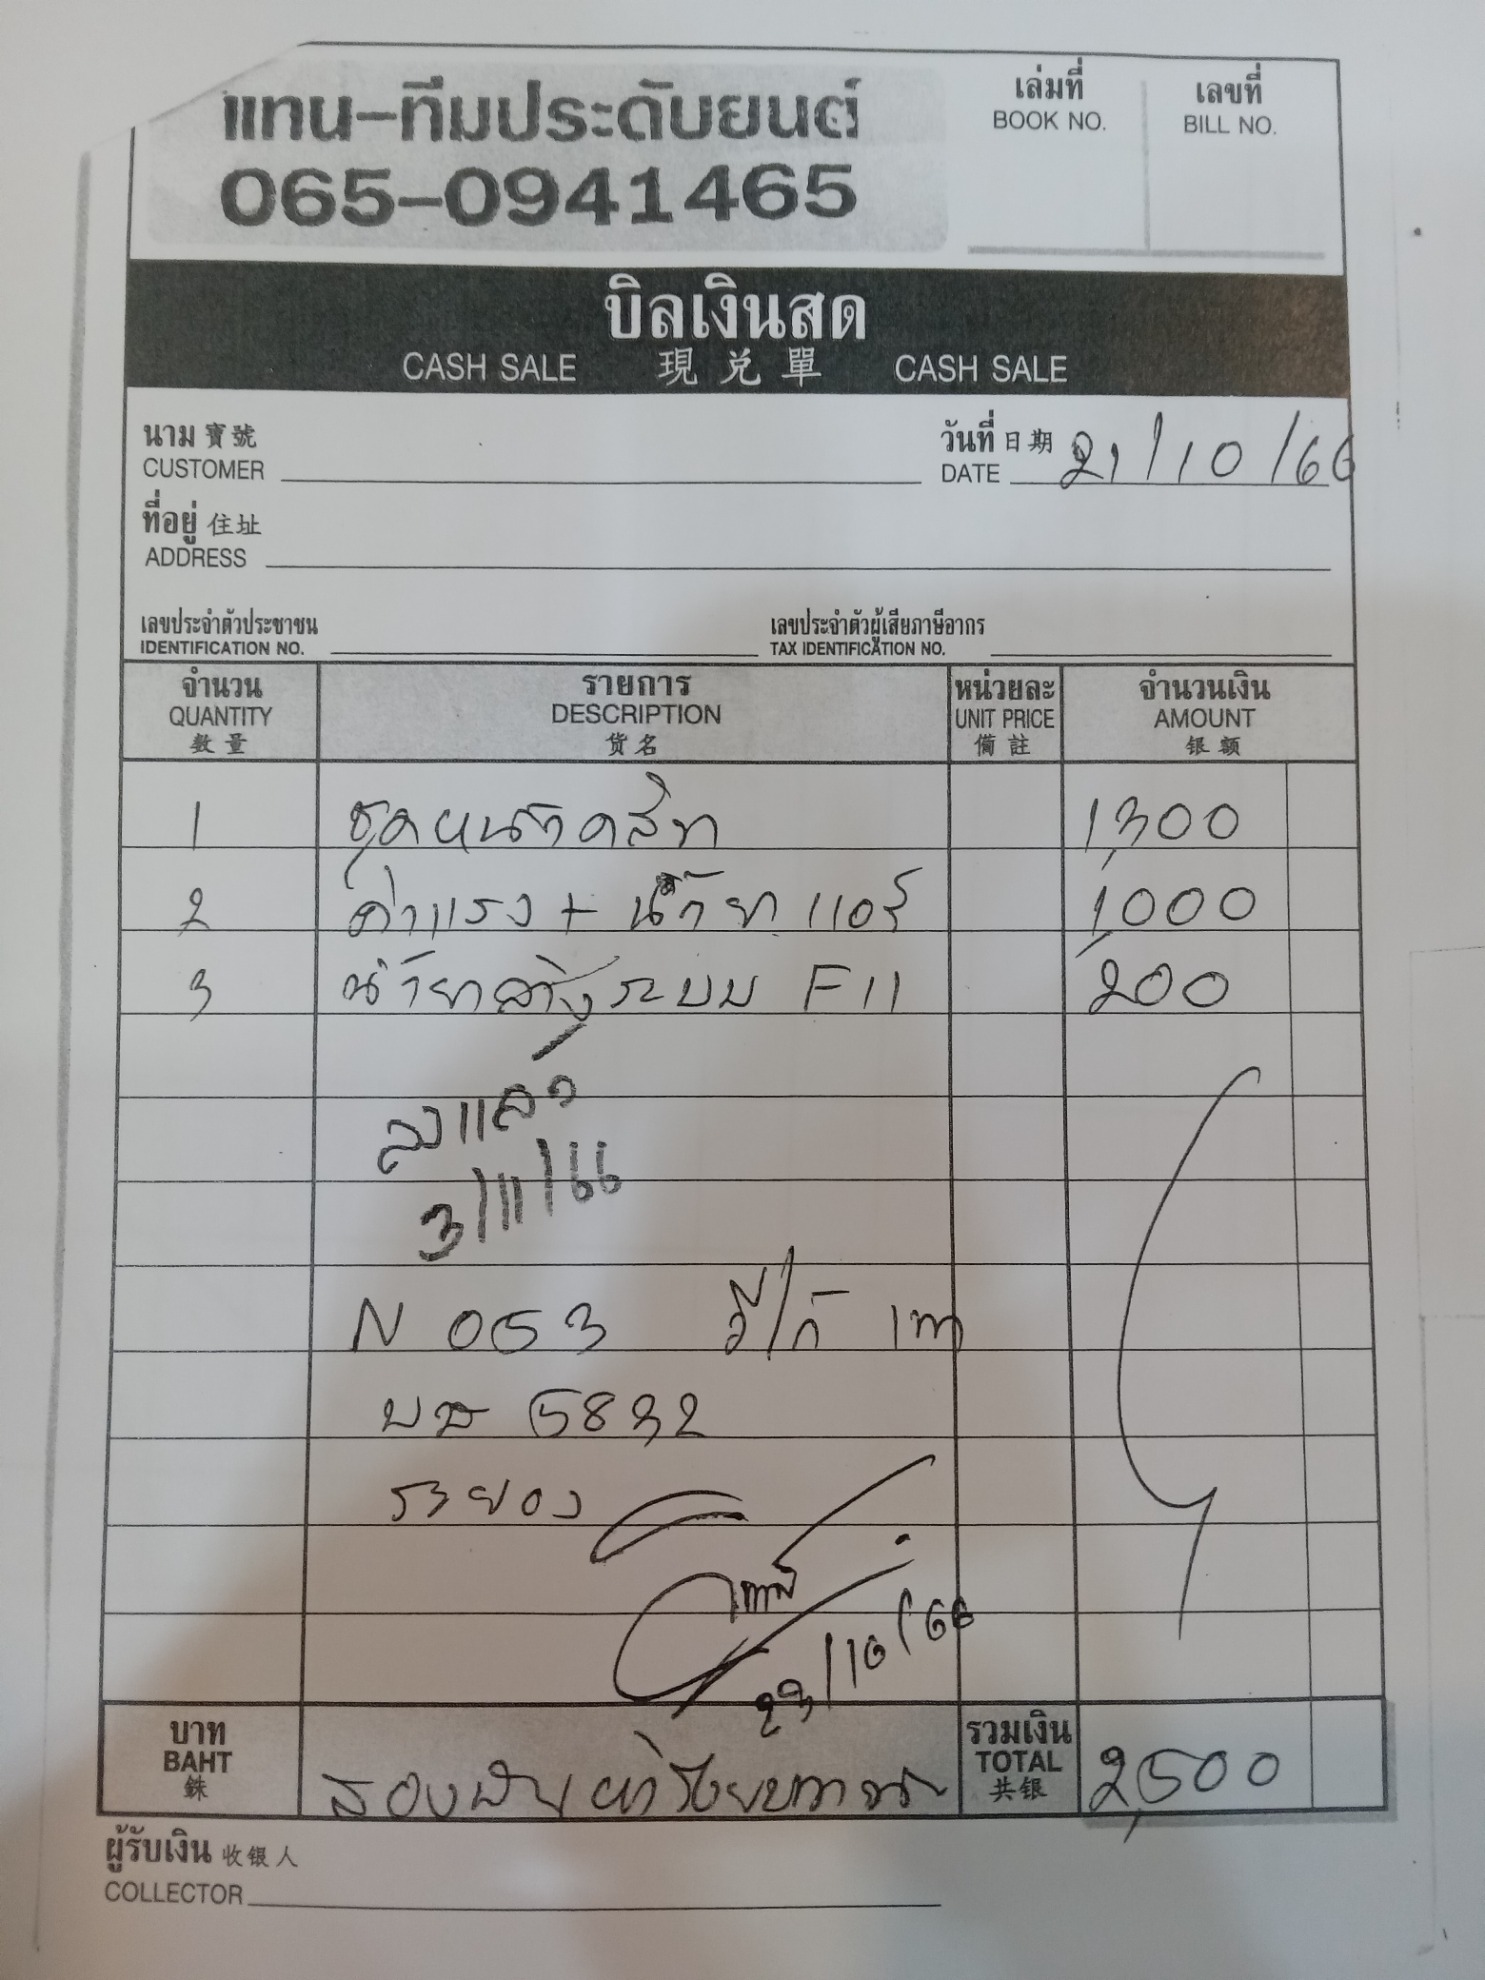 แทน-ทีมประดับยนต์
065-0941465
เล่มที่
BOOK NO.
เลขที่
BILL NO.
บิลเงินสด
CASH SALE 現兑單 CASH SALE
นาม 寳號
CUSTOMER
วันที่ 日期
DATE 21/10/66
ที่อยู่ 住址
ADDRESS
เลขประจำตัวประชาชน
IDENTIFICATION NO.
เลขประจำตัวผู้เสียภาษีอากร
TAX IDENTIFICATION NO.
จำนวน รายการ หน่วยละ จำนวนเงิน
QUANTITY DESCRIPTION UNIT PRICE AMOUNT
数量 货名 備註 银额
1 ชุดหน้าคลัท 1,300
2 ค่าแรง + น้ำยาแอร์ 1,000
3 น้ำยาล้างระบบ F11 200
ลงแล้ว
3/11/66
N 053 วี/ก้
5832
ระยอง
23/10/66
บาท
BAHT
銖
สองพันห้าร้อยบาท
รวมเงิน
TOTAL
共银
2,500
ผู้รับเงิน 收银人
COLLECTOR